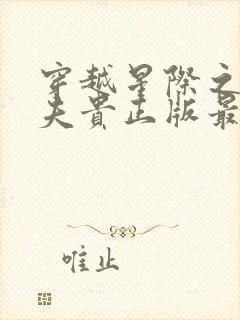 穿越星际之
夫贵正版最
唯止